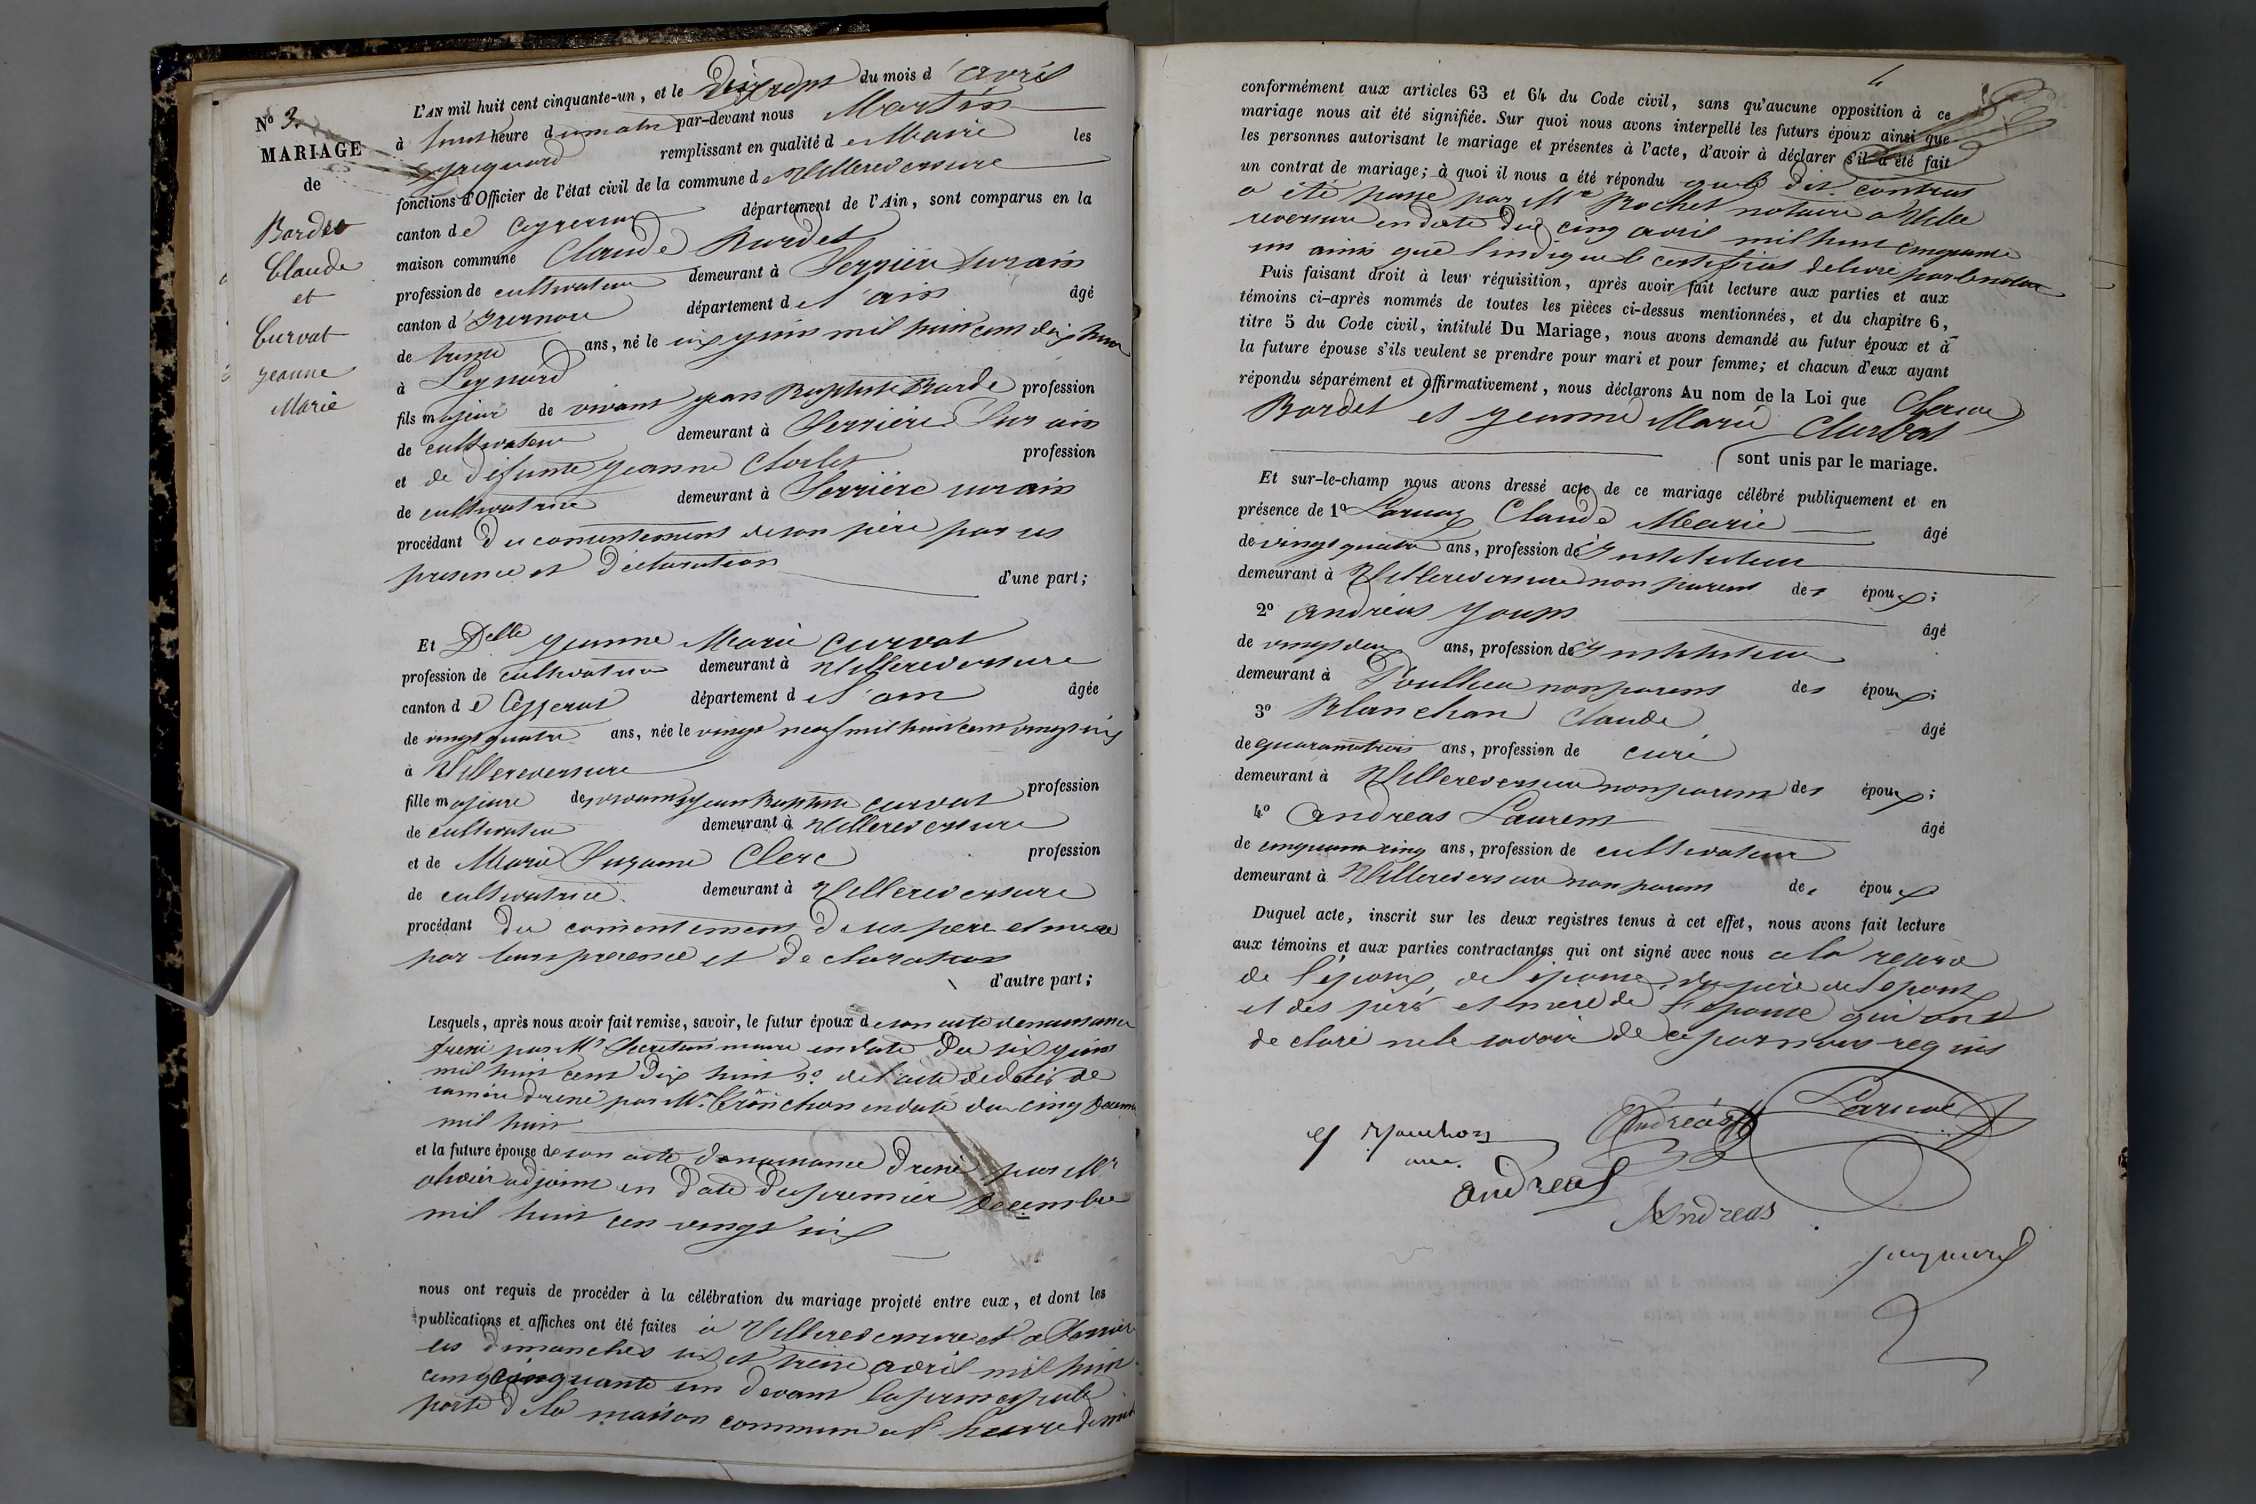 L'AN mil huit cent cinquante-un, et le Dix sept du mois d'avril
N° 3.
à huit heure du matin par-devant nous Martin
MARIAGE
Jacquard remplissant en qualité de Maire les
de
fonctions d'Officier de l'état civil de la commune de Villereversure
canton de Ceyzeriat département de l'Ain, sont comparus en la
Bordet
Claude
et
Curvat
Jeanne
Marie
maison commune Claude Burdet
profession de cultivateur demeurant à Serrière sur ain
canton d'Izernore département de l'ain âgé
de trente ans, né le six juin mil huit cent dix huit
à Leyssard
fils majeur de vivant jean Baptiste Borde profession
de cultivateur demeurant à Serrière Sur ain
et de défunte jeanne profession
de cultivatrice demeurant à Serrière sur ain
procédant du consentement de son père par sa
presence et déclaration d'une part;
Et Delle jeanne Marie curvat
profession de cultivatrice demeurant à Villereversure
canton de Ceyzeriat département de l'ain âgée
de vingt quatre ans, née le vingt neuf mil huit cent vingt six
à Villereversure
fille majeure de vivants jean Baptiste curvat profession
de cultivateur demeurant à Villereversure
et de Marie Suzanne Clerc profession
de cultivatrice demeurant à Villereversure
procédant du consentement de ses pere et mere
par leurs presence et declaration
d'autre part;
Lesquels, après nous avoir fait remise, savoir, le futur époux de son acte de naissance
par Mr maire en date du six juin
mil huit cent dix huit 2° de l'acte de décès de
sa mère par Mr. en date du cinq Decembre
mil huit
et la future épouse de son acte de naissance par Mr
adjoint en date du premier Decembre
mil huit cen vingt six
nous ont requis de procéder à la célébration du mariage projeté entre eux, et dont les
publications et affiches ont été faites à Villereversure et a Serrière
les dimanches six et treize avril mil huit
cent cinquante un devant la principale
porte de la maison commune a l'heure de midi
4
conformément aux articles 63 et 64 du Code civil, sans qu'aucune opposition à ce
mariage nous ait été signifiée. Sur quoi nous avons interpellé les futurs époux ainsi que
les personnes autorisant le mariage et présentes à l'acte, d'avoir à déclarer s'il a été fait
un contrat de mariage; à quoi il nous a été répondu que le dit contrat
a été passé par Mr Rochet notaire a Ville
reversure en date du cinq avril mil huit cinquante
un ainsi que l'indique le certificat delivré par le notaire
Puis faisant droit à leur réquisition, après avoir fait lecture aux parties et aux
témoins ci-après nommés de toutes les pièces ci-dessus mentionnées, et du chapitre 6,
titre 5 du Code civil, intitulé Du Mariage, nous avons demandé au futur époux et à
la future épouse s'ils veulent se prendre pour mari et pour femme; et chacun d'eux ayant
répondu séparément et affirmativement, nous déclarons Au nom de la Loi que
Bordet et jeanne Marie Curvat
sont unis par le mariage.
Et sur-le-champ nous avons dressé acte de ce mariage célébré publiquement et en
présence de 1° Claude Marie âgé
de vingt quatre ans, profession de Instituteur
demeurant à Villereversure non parent des époux;
2° andréas âgé
de vingt deux ans, profession de Instituteur
demeurant à non parent des époux;
3° Blanchon Claude âgé
de quarante trois ans, profession de curé
demeurant à Villereversure non parent des époux;
4° Andreas Laurent âgé
de cinquante cinq ans, profession de cultivateur
demeurant à Villereversure non parent des époux
Duquel acte, inscrit sur les deux registres tenus à cet effet, nous avons fait lecture
aux témoins et aux parties contractantes qui ont signé avec nous a la reserve
de l'époux, de l'épouse, du père de l'epoux
et des père et mere de l'épouse qui ont
declaré ne le savoir de ce par nous requis
Andréas
Andréas
Andreas
Jacquard